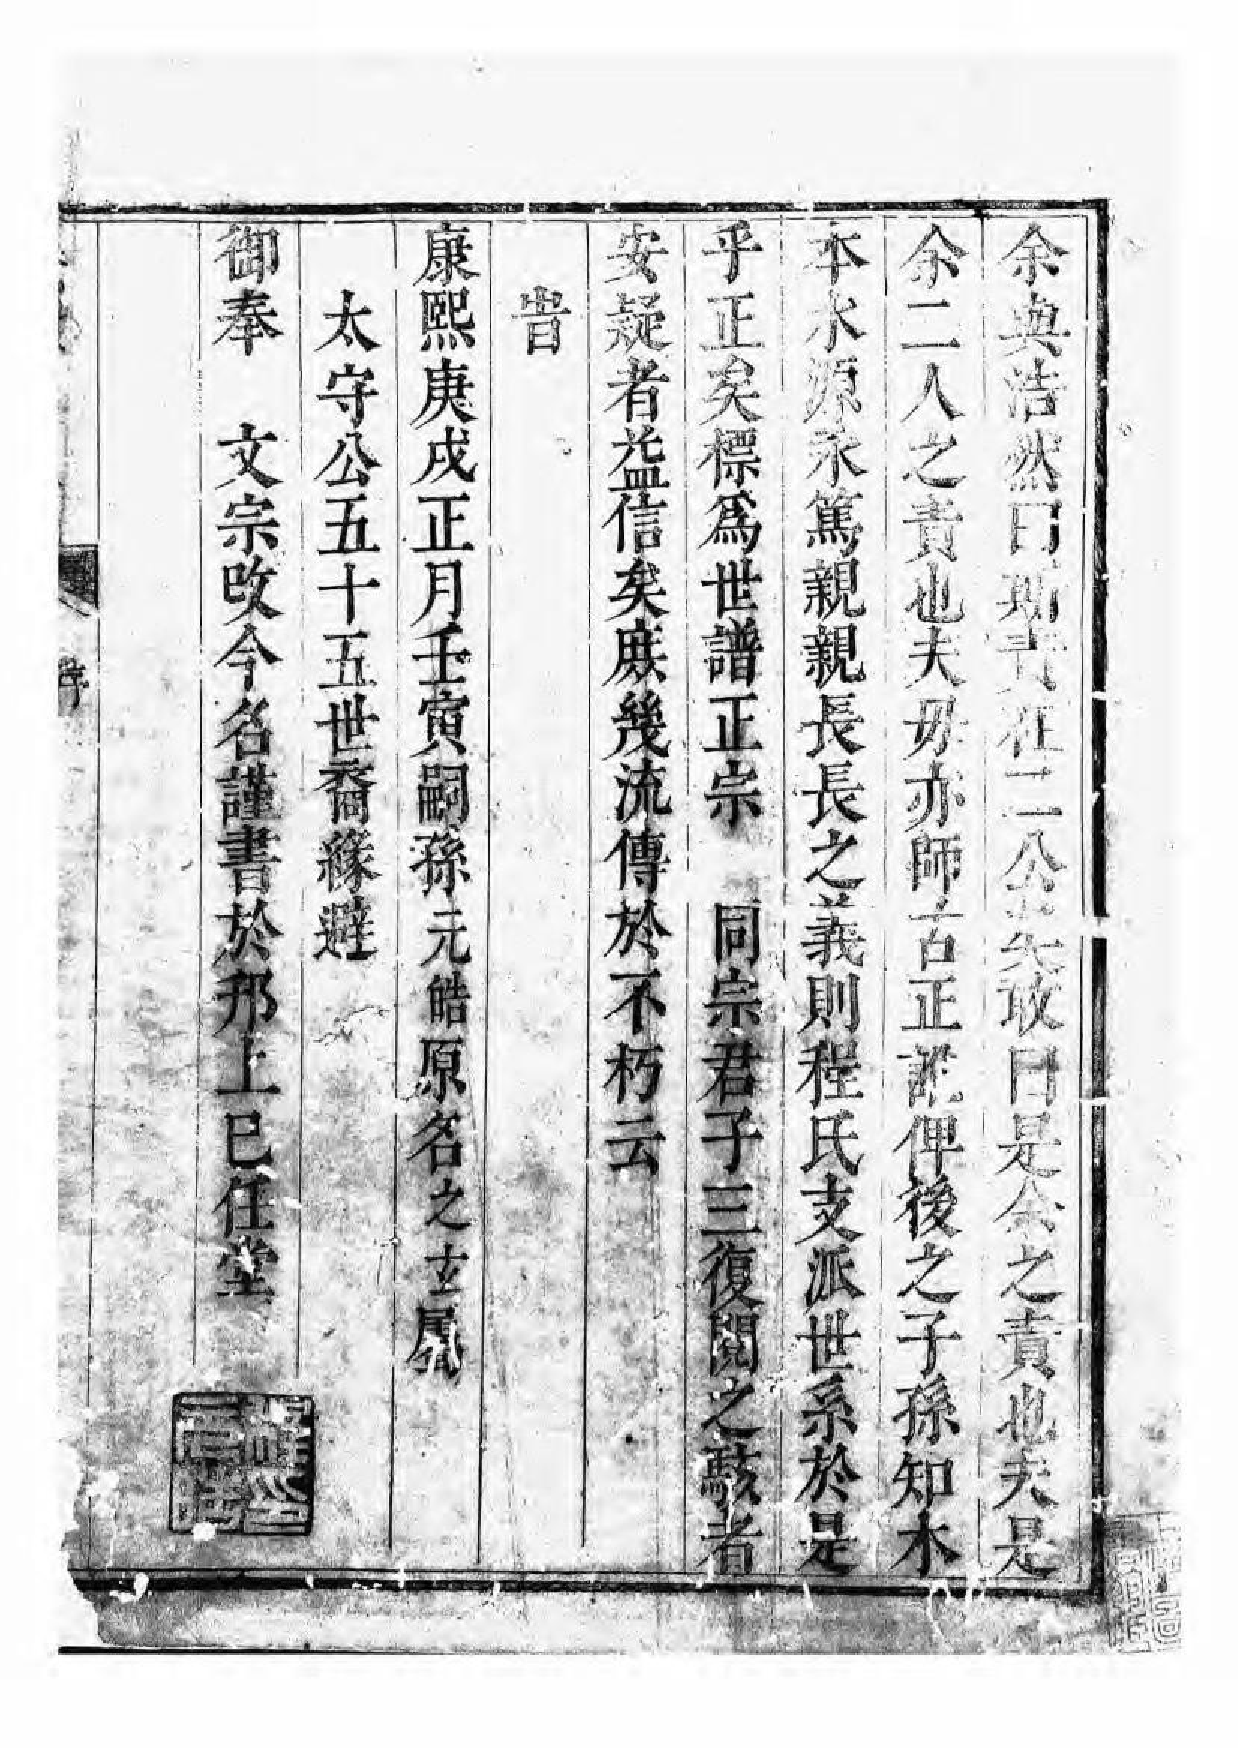 余與浩然曰斯責在二公公矢敢曰是余之責也夫是
余二人之責也夫毋亦師古正訛俾後之子孫知木
本水源永篤親親長長之義則程氏支派世系於是
乎正矣標爲世譜正宗　同宗君子三復閱之駭者
安疑者益信矣庶幾流傳於不朽云
旹
康熙庚戌正月壬寅嗣孫元皓原名之玄屬
太守公五十五世裔緣避
御奉　文宗改今名謹書於邗上已任堂
序